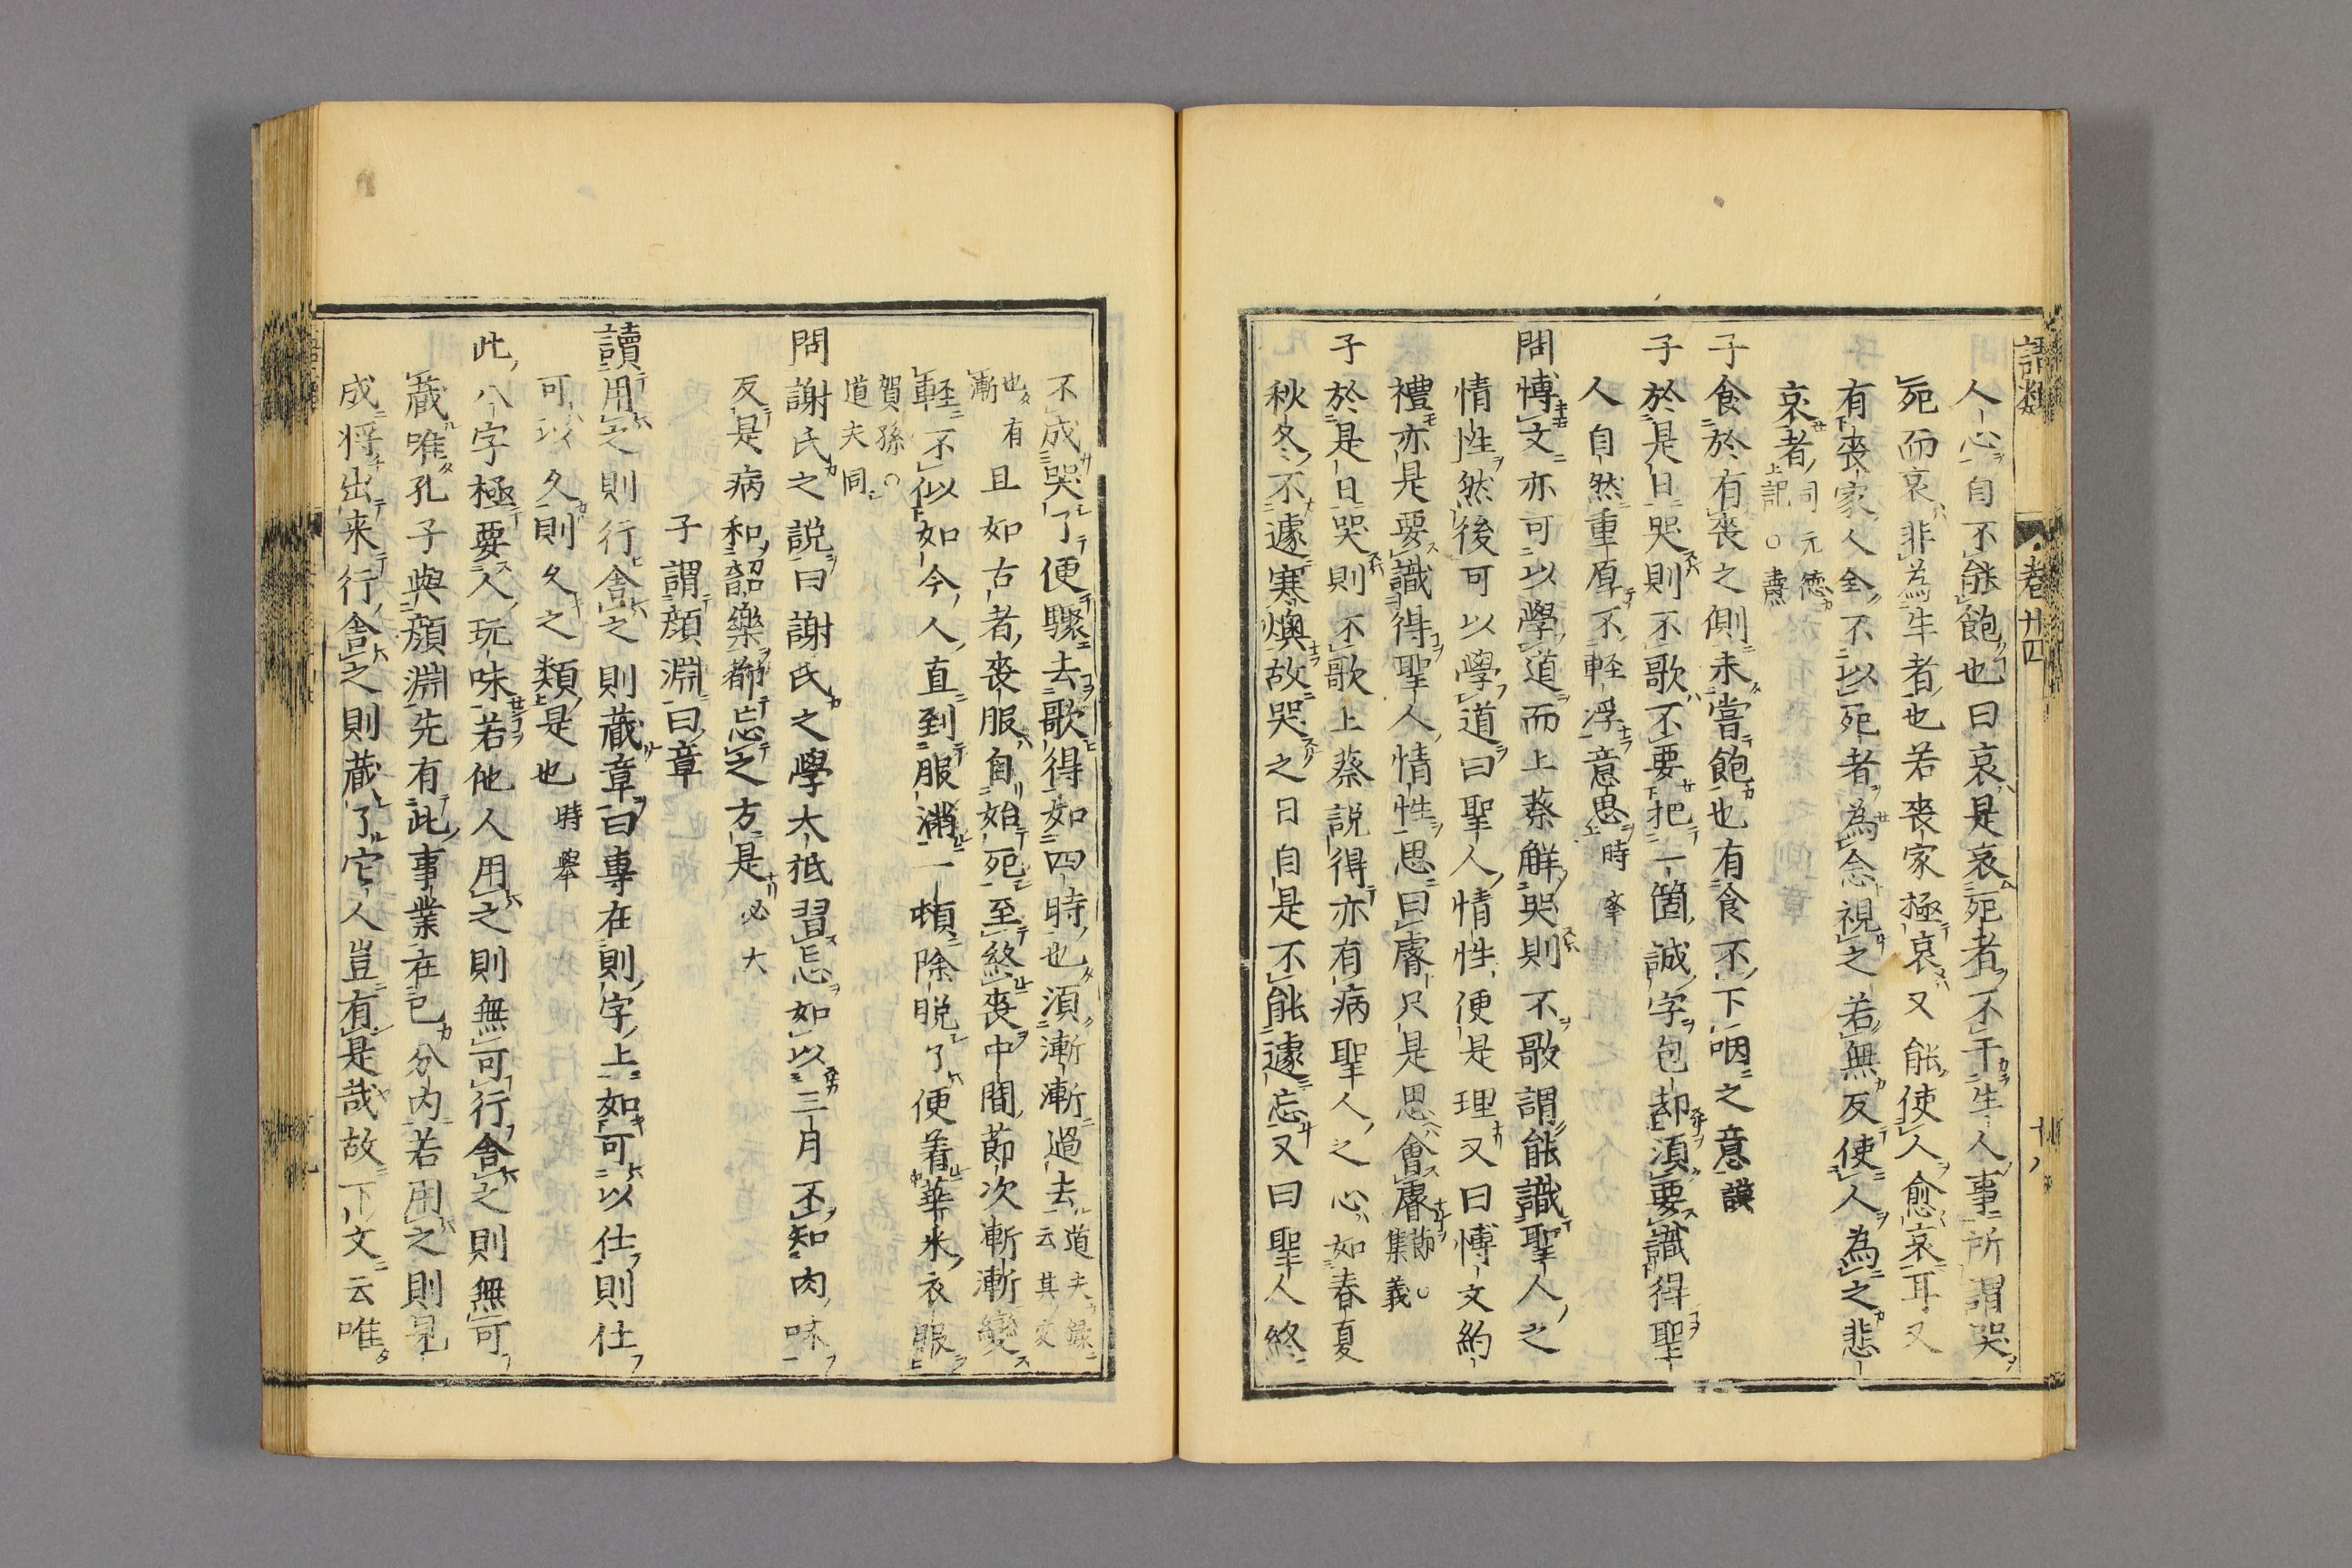 語類
卷廿四
人心自不能飽也曰哀是哀死者不干生人事所謂哭
死而哀非為生者也若喪家極哀又能使人愈哀耳又
有喪家人全不以死者為念視之若無反使人為之悲
哀者同元德上記○燾
子食於有喪之側未嘗飽也有食不下咽之意謨
子於是日哭則不歌不要把一箇誠字包却須要識得聖
人自然重厚不輕浮意思時舉
問博文亦可以學道而上蔡解哭則不歌謂能識聖人之
情性然後可以學道曰聖人情性便是理又曰博文約
禮亦是要識得聖人情性思曰睿只是思會睿節○集義
子於是日哭則不歌上蔡說得亦有病聖人之心如春夏
秋冬不遽寒燠故哭之日自是不能遽忘又曰聖人終
不成哭了便驟去歌得如四時也須漸漸過去道夫錄云其變
也有漸且如古者喪服自始死至終喪中間節次漸漸變
輕不似如今人直到服滿一頓除脫了便着華采衣服
賀孫○道夫同
問謝氏之説曰謝氏之學大抵習忘如以三月不知肉味
反是病和韶樂都忘之方是必大
子謂顏淵曰章
讀用之則行舍之則蔵章曰專在則字上如可以仕則仕
可以久則久之類是也時舉
此八字極要人玩味若他人用之則無可行舍之則無可
蔵唯孔子與顏淵先有此事業在己分内若用之則見
成将出来行舍之則蔵了它人豈有是哉故下文云唯